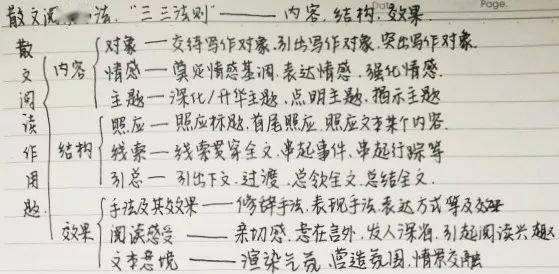 散文阅 法.“三三法则”—— 内容.结构.效果.
散文阅读作用题
内容
对象 — 交待写作对象.引出写作对象.突出写作对象.
情感 — 奠定情感基调.表达情感.强化情感.
主题 — 深化/升华主题.点明主题.揭示主题
结构
照应 — 照应标题.首尾照应.照应文本某个内容.
线索 — 线索贯穿全文.串起事件.串起行踪等
引总 — 引出下文.过渡.总领全文.总结全文.
效果
手法及其效果 — 修辞手法.表现手法.表达方式等及效
阅读感受 — 亲切感.意在言外.发人深省.引起阅读兴趣
文本意境 — 渲染气氛.营造氛围.情景交融
Page.